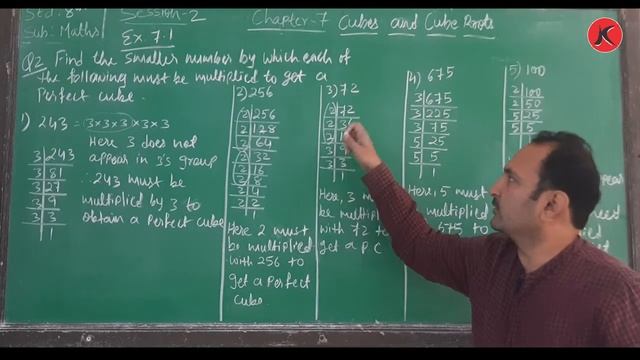 Std: 8th
Sub: Maths
Session-2
Ex 7.1
Chapter-7 Cubes and Cube Roots
Q2 Find the Smaller number by which each of
the following must be multiplied to get a
Perfect cube.
1) 243 = 3×3×3×3×3
Here 3 does not
appear in 3's group
∴ 243 must be
multiplied by 3 to
obtain a Perfect cube
3 243
3 81
3 27
3 9
3 3
1
2) 256
2 256
2 128
2 64
2 32
2 16
2 8
2 4
2 2
1
Here 2 must
be multiplied
with 256 to
get a Perfect
cube.
3) 72
2 72
2
2
3 9
3 3
1
Here, 3 
be multi
with 72 to
get a P C
4) 675
3 675
3 225
3 75
5 25
5 5
1
Here, 5 must
multiplied
675 to
5) 100
2 100
2 50
5 25
5 5
1
K